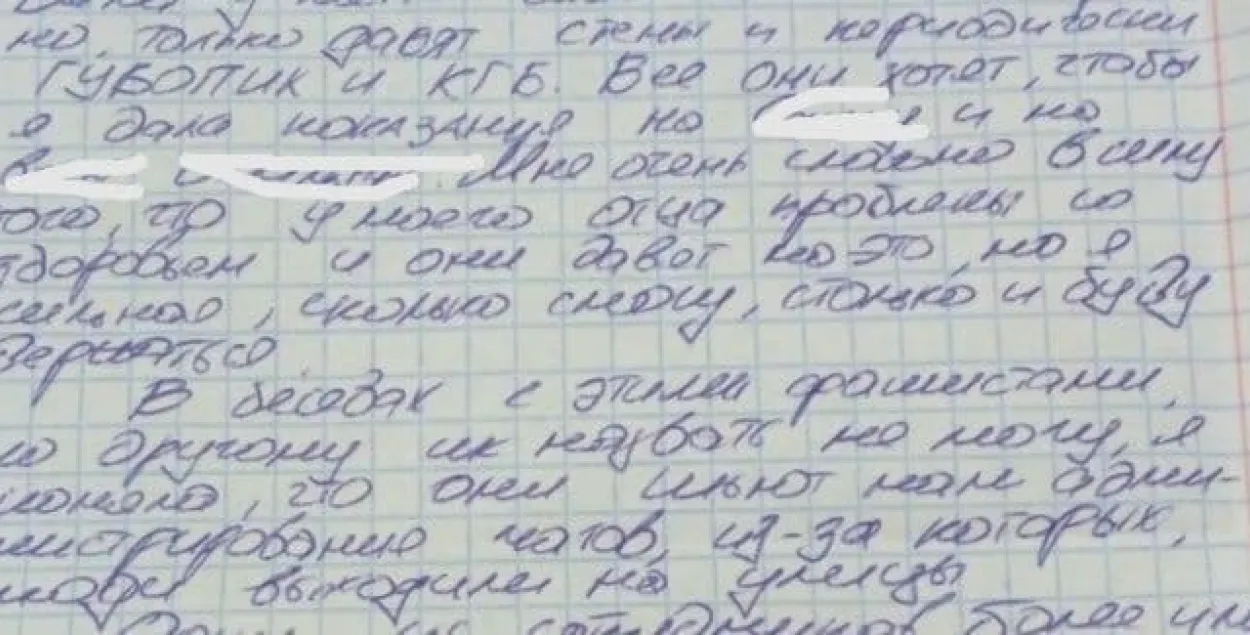 но, только давят стены и периодически
ГУБОПИК и КГБ. Все они хотят, чтобы
я дала показания на и на
Мне очень сложно в силу
того, что у моего отца проблемы со
здоровьем и они давят на это, но я
сильная, сколько смогу, столько и буду
держаться
В беседах с этими фашистами,
по другому их назвать не могу, я
поняла, что они шьют нам адми-
нистрирование чатов, из-за которых,
люди выходили на улицы
сотрудников более или